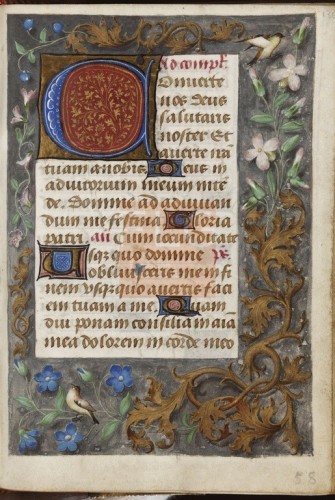 Ad compl
Conuerte
nos deus
salutaris
noster Et
auerte irā
tuam a nobis. Deus in
adiutorium meum inte
de. Domine ad adiuuan
dum me festina Gloria
patri. an Cum iocunditate
Usquequo domine ps.
obliuisceris me in fi
nem usquequo auertis faci
em tuam a me. Quam
diu ponam consilia in aīa
mea dolorem in corde meo
58